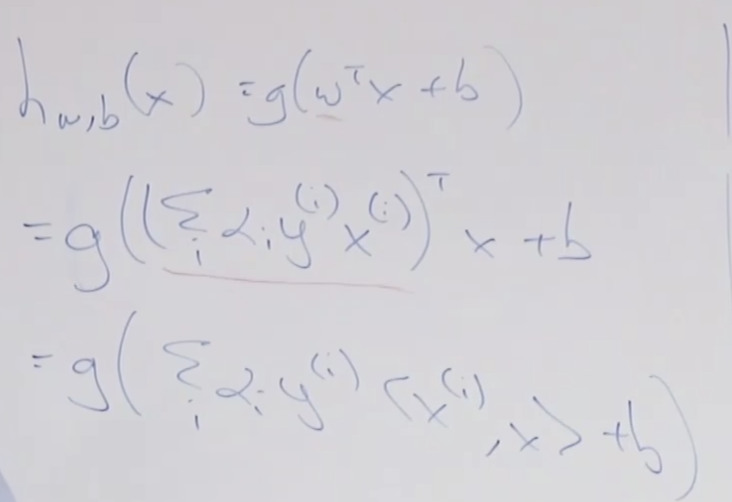 h_{w,b}(x) = g(w^T x + b)
= g((Σ_i α_i y^{(i)} x^{(i)})^T x + b
= g(Σ_i α_i y^{(i)} <x^{(i)}, x> + b)